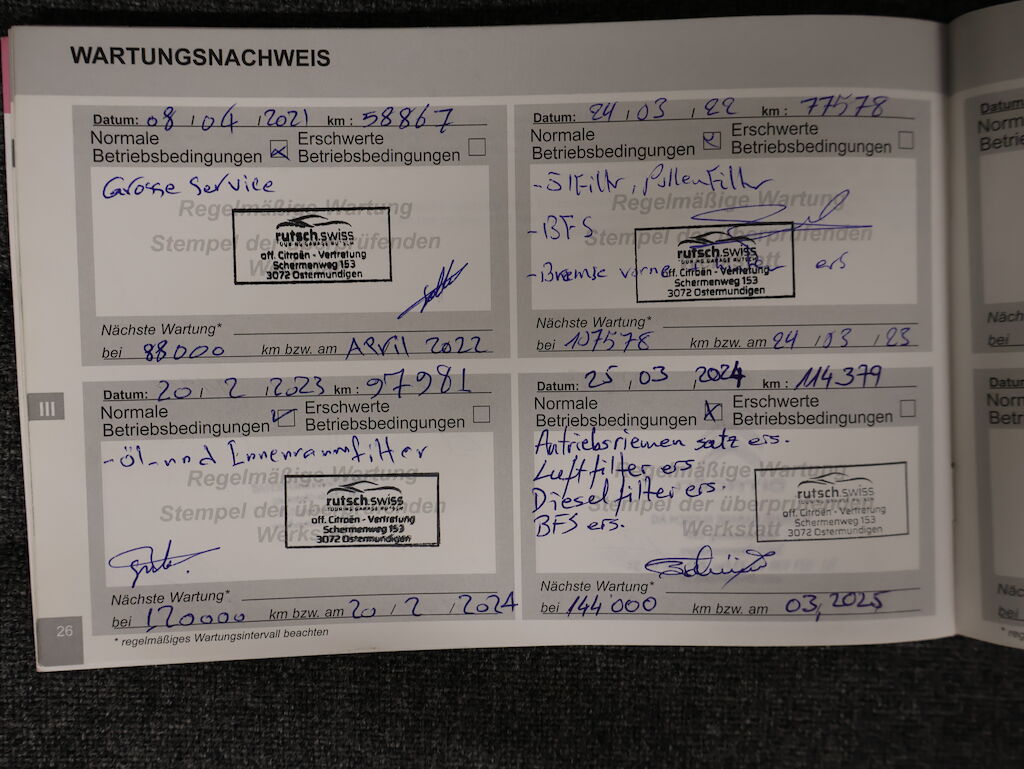 WARTUNGSNACHWEIS
Datum: 08 / 04 / 2021 km : 58867
Normale
Betriebsbedingungen
Erschwerte
Betriebsbedingungen
Grosse Service
Regelmäßige Wartung
Stempel der überprüfenden
rutsch.swiss
off. Citroën - Vertretung
Schermenweg 153
3072 Ostermundigen
Nächste Wartung*
bei 88000 km bzw. am APRIL 2022
Datum: 24 / 03 / 22 km : 77578
Normale
Betriebsbedingungen
Erschwerte
Betriebsbedingungen
- ÖlFilter, PollenFilter
Regelmäßige Wartung
- BFS
Stempel der überprüfenden
- Bremse vorne ers
rutsch.swiss
off. Citroën - Vertretung
Schermenweg 153
3072 Ostermundigen
Nächste Wartung*
bei 107578 km bzw. am 24 / 03 / 23
III
Datum: 20 / 2 / 2023 km : 97981
Normale
Betriebsbedingungen
Erschwerte
Betriebsbedingungen
- Öl- und Innenraumfilter
Regelmäßige Wartung
Stempel der überprüfenden
Werkstatt
rutsch.swiss
TOURING GARAGE RUTSCH
off. Citroën - Vertretung
Schermenweg 153
3072 Ostermundigen
Nächste Wartung*
bei 120000 km bzw. am 20 / 2 / 2024
Datum: 25 / 03 / 2024 km : 114379
Normale
Betriebsbedingungen
Erschwerte
Betriebsbedingungen
Antriebsriemen satz ers.
Luftfilter ers
Dieselfilter ers.
BFS ers.
Regelmäßige Wartung
Stempel der überprüfenden
Werkstatt
rutsch.swiss
TOURING GARAGE RUTSCH
off. Citroën - Vertretung
Schermenweg 153
3072 Ostermundigen
Nächste Wartung*
bei 144'000 km bzw. am 03,2025
26
* regelmäßiges Wartungsintervall beachten
Datum